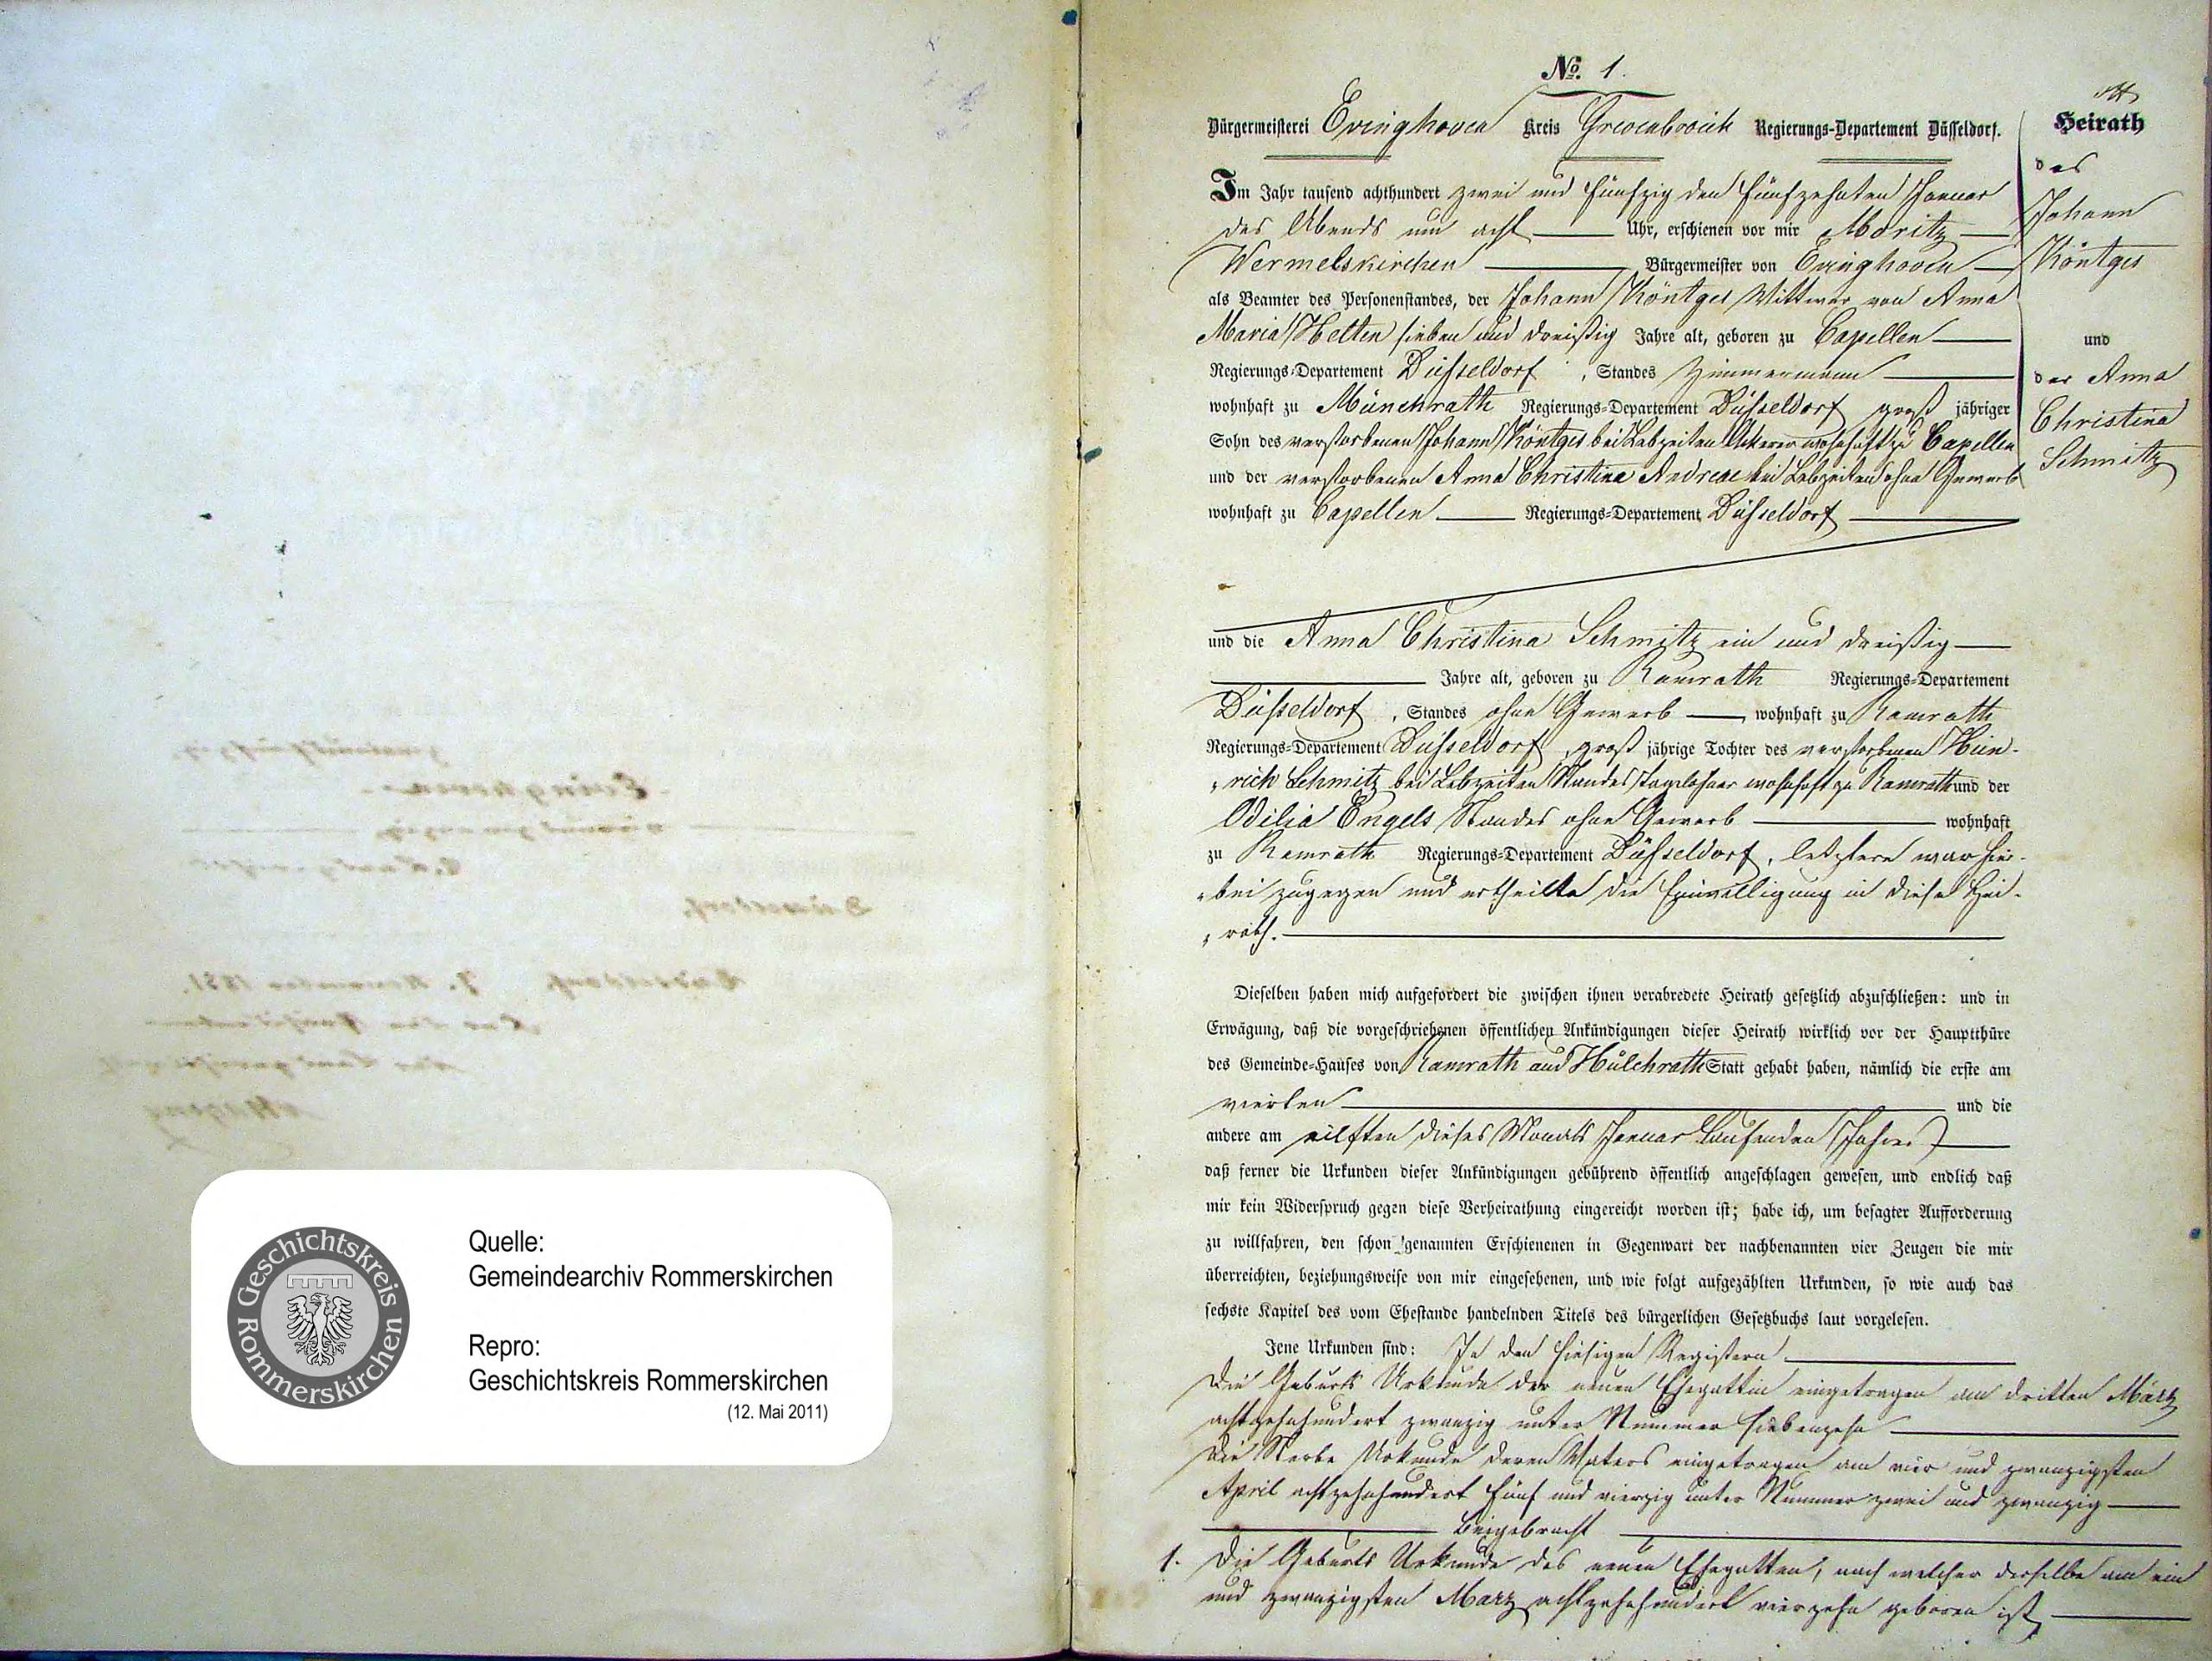 Geschichtskreis Rommerskirchen
Quelle:
Gemeindearchiv Rommerskirchen
Repro:
Geschichtskreis Rommerskirchen
(12. Mai 2011)
No. 1.
Bürgermeisterei Evinghoven Kreis Grevenbroich Regierungs-Departement Düsseldorf.
Im Jahr tausend achthundert zwei und fünfzig den fünfzehnten Januar
des Abends um acht Uhr, erschienen vor mir Moritz
Wermelskirchen Bürgermeister von Evinghoven
als Beamter des Personenstandes, der Johann Köntges Wittwer von Anna
Maria Helten sieben und dreißig Jahre alt, geboren zu Capellen
Regierungs-Departement Düsseldorf, Standes Zimmermann
wohnhaft zu Münchrath Regierungs-Departement Düsseldorf groß jähriger
Sohn des verstorbenen Johann Köntges bei Lebzeiten Ackerer wohnhaft zu Capellen
und der verstorbenen Anna Christina Andreae bei Lebzeiten ohne Gewerb
wohnhaft zu Capellen Regierungs-Departement Düsseldorf
und die Anna Christina Schmitz ein und dreißig
Jahre alt, geboren zu Ramrath Regierungs-Departement
Düsseldorf, Standes ohne Gewerb, wohnhaft zu Ramrath
Regierungs-Departement Düsseldorf, groß jährige Tochter des verstorbenen Hein-
rich Schmitz bei Lebzeiten Standes Tagelohner wohnhaft zu Ramrath und der
Odilia Engels Standes ohne Gewerb wohnhaft
zu Ramrath Regierungs-Departement Düsseldorf, letztere war hie-
bei zugegen und ertheilte die Einwilligung in diese Hei-
rath.
Dieselben haben mich aufgefordert die zwischen ihnen verabredete Heirath gesetzlich abzuschließen: und in
Erwägung, daß die vorgeschriebenen öffentlichen Ankündigungen dieser Heirath wirklich vor der Hauptthüre
des Gemeinde-Hauses von Ramrath und Hülchrath Statt gehabt haben, nämlich die erste am
vierten und die
andere am eilften dieses Monats Januar laufenden Jahres
daß ferner die Urkunden dieser Ankündigungen gebührend öffentlich angeschlagen gewesen, und endlich daß
mir kein Widerspruch gegen diese Verheirathung eingereicht worden ist; habe ich, um besagter Aufforderung
zu willfahren, den schon genannten Erschienenen in Gegenwart der nachbenannten vier Zeugen die mir
überreichten, beziehungsweise von mir eingesehenen, und wie folgt aufgezählten Urkunden, so wie auch das
sechste Kapitel des vom Ehestande handelnden Titels des bürgerlichen Gesetzbuchs laut vorgelesen.
Jene Urkunden sind: In den hiesigen Registern
Die Geburts Urkunde der neuen Ehegattin eingetragen am dritten März
achtzehnhundert zwanzig unter Nummer siebenzehn
Die Sterbe Urkunde deren Vaters eingetragen am vier und zwanzigsten
April achtzehnhundert fünf und vierzig unter Nummer zwei und zwanzig
Beigebracht
1. Die Geburts Urkunde des neuen Ehegatten, nach welcher derselbe am ein
und zwanzigsten März achtzehnhundert vierzehn geboren ist
Heirath
des
Johann
Köntges
und
der Anna
Christina
Schmitz